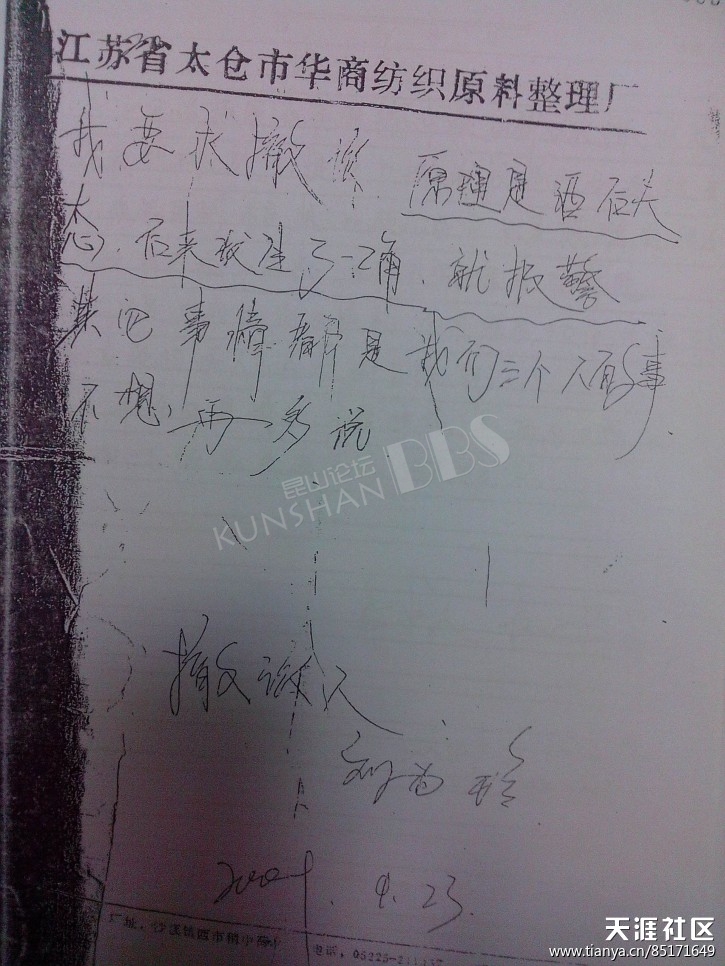 江苏省太仓市华商纺织原料整理厂
我要求撤诉.原理是酒后失
态.后来发生了一角.就报警
其它事情都是我们三个人的事
不想,再多说
昆山论坛
KUNSHAN BBS
撤诉人
刘为珍
4.23.
厂址:沙溪镇西市梢中
电话:05225-211137
天涯社区
www.tianya.cn/85171649